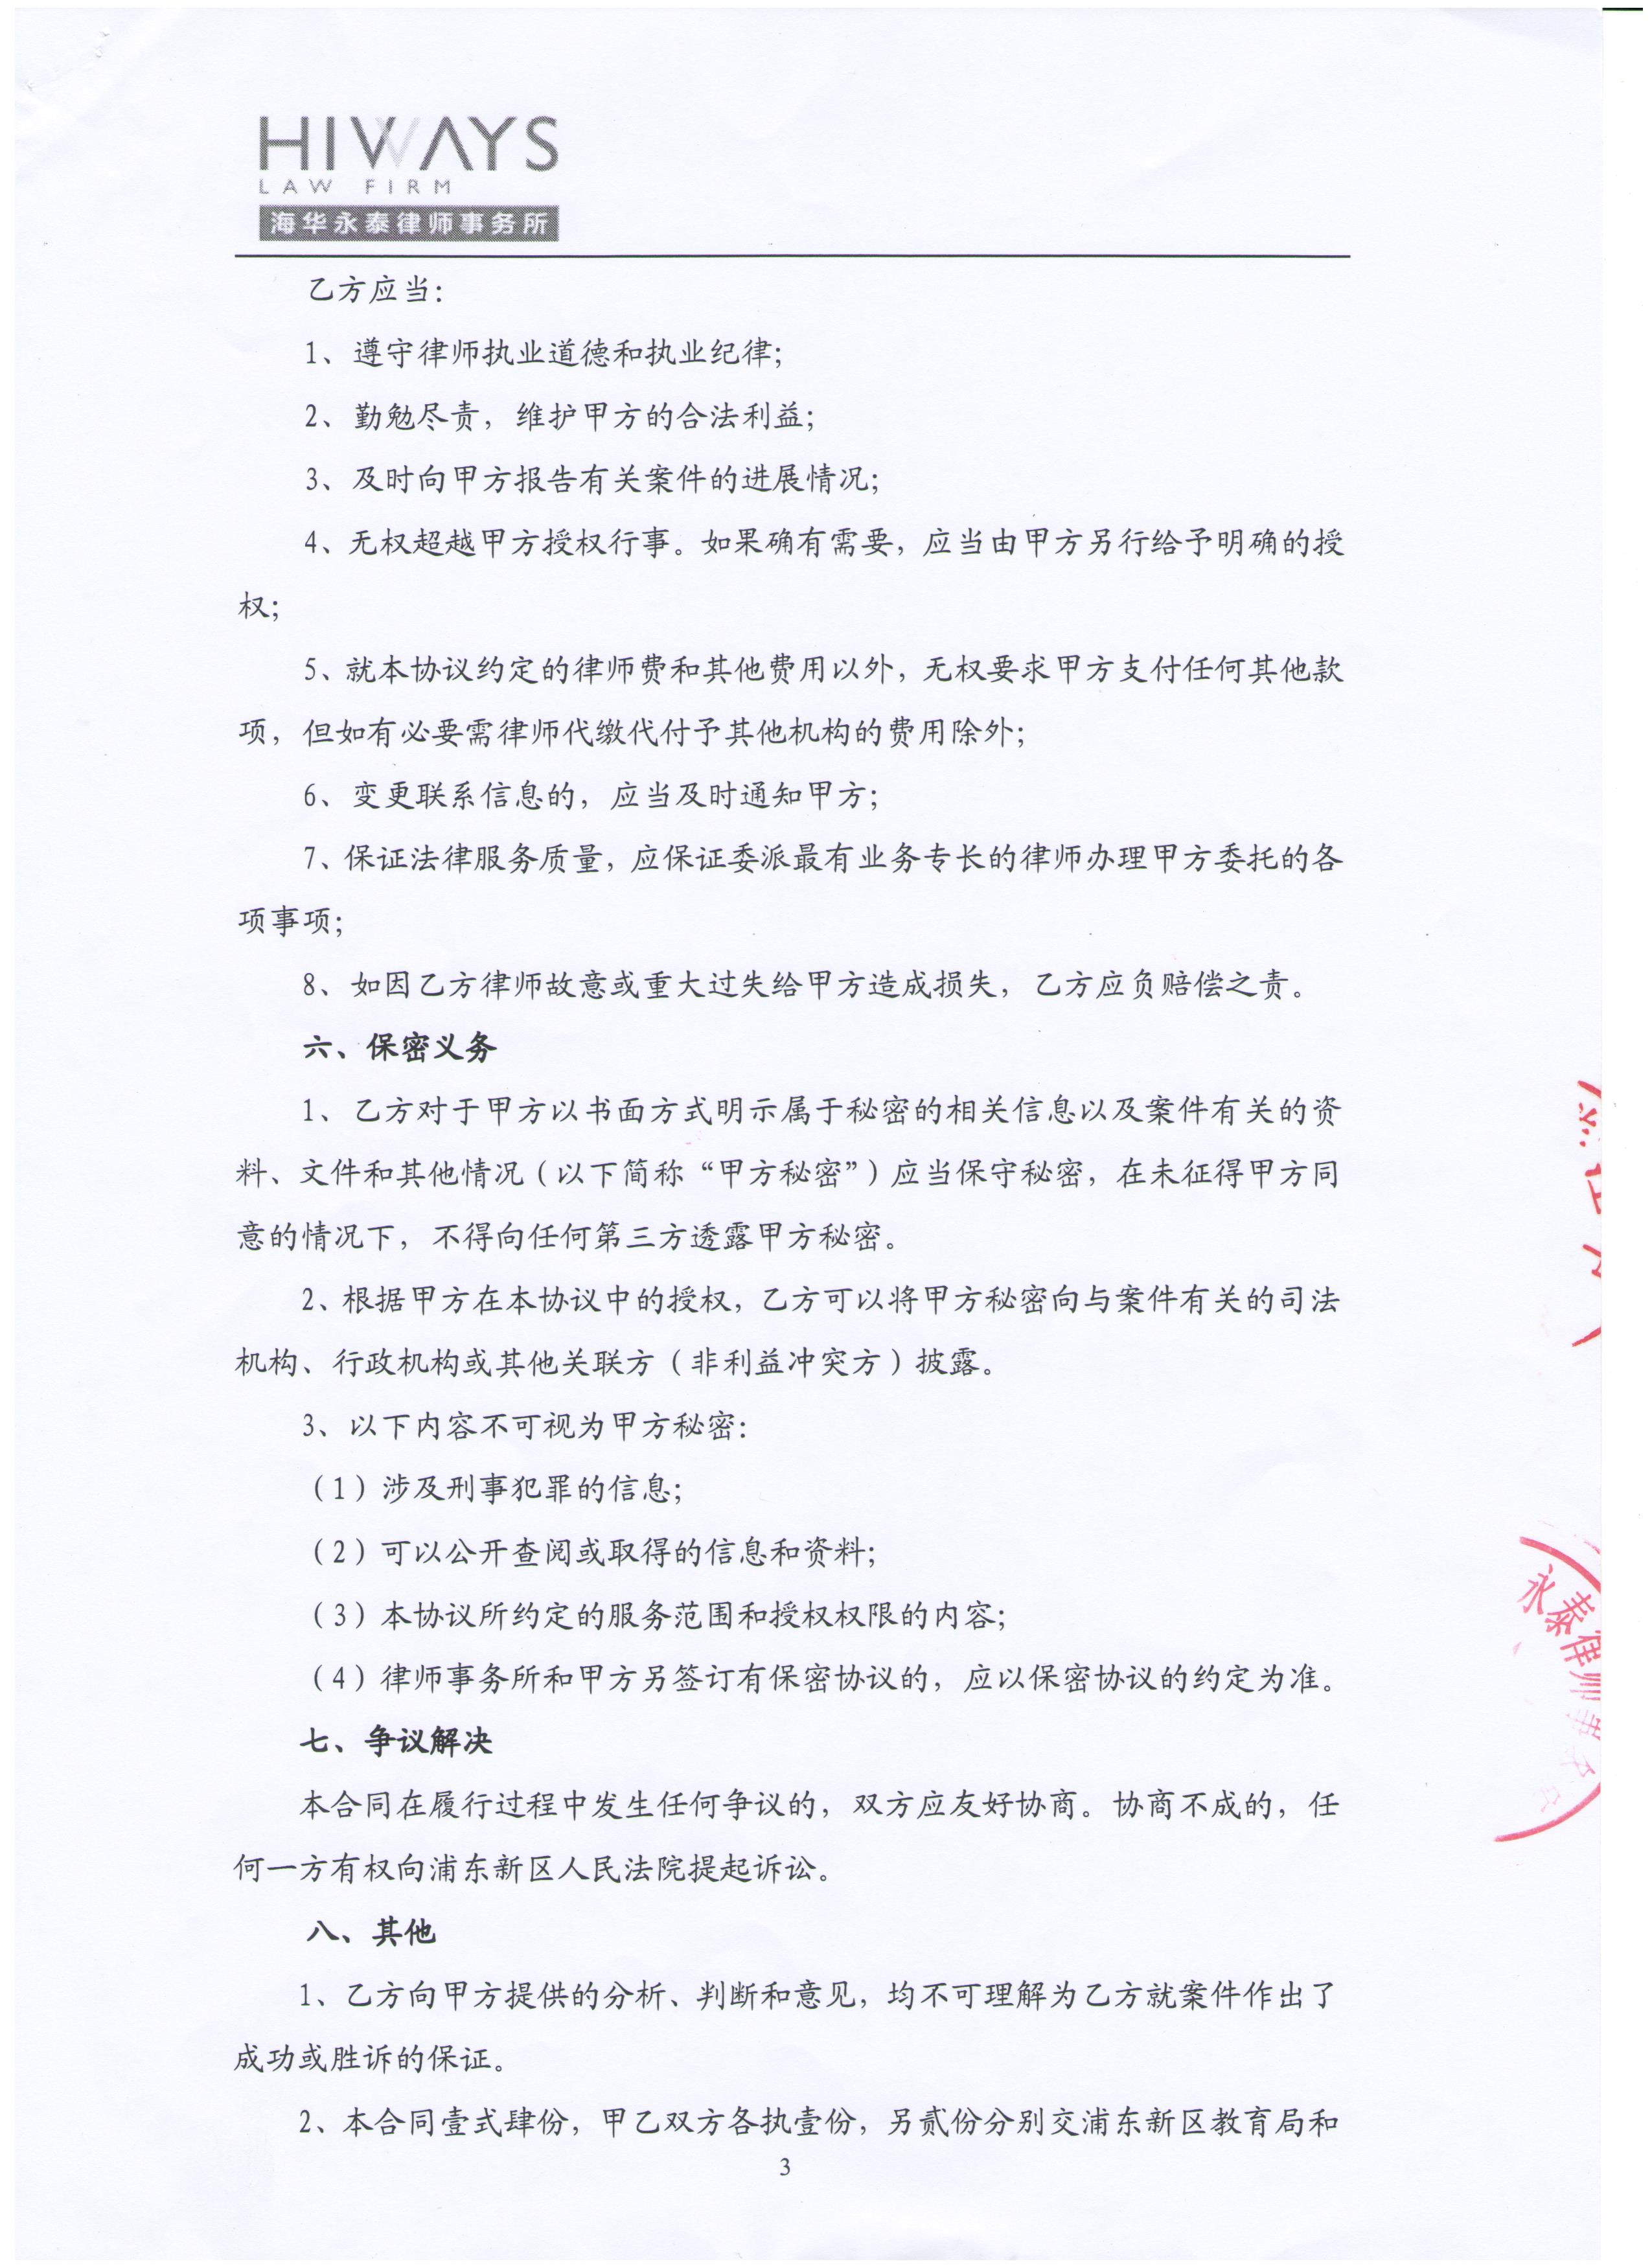 HIWAYS
LAW FIRM
海华永泰律师事务所
乙方应当：
1、遵守律师执业道德和执业纪律；
2、勤勉尽责，维护甲方的合法利益；
3、及时向甲方报告有关案件的进展情况；
4、无权超越甲方授权行事。如果确有需要，应当由甲方另行给予明确的授
权；
5、就本协议约定的律师费和其他费用以外，无权要求甲方支付任何其他款
项，但如有必要需律师代缴代付予其他机构的费用除外；
6、变更联系信息的，应当及时通知甲方；
7、保证法律服务质量，应保证委派最有业务专长的律师办理甲方委托的各
项事项；
8、如因乙方律师故意或重大过失给甲方造成损失，乙方应负赔偿之责。
六、保密义务
1、乙方对于甲方以书面方式明示属于秘密的相关信息以及案件有关的资
料、文件和其他情况（以下简称“甲方秘密”）应当保守秘密，在未征得甲方同
意的情况下，不得向任何第三方透露甲方秘密。
2、根据甲方在本协议中的授权，乙方可以将甲方秘密向与案件有关的司法
机构、行政机构或其他关联方（非利益冲突方）披露。
3、以下内容不可视为甲方秘密：
（1）涉及刑事犯罪的信息；
（2）可以公开查阅或取得的信息和资料；
（3）本协议所约定的服务范围和授权权限的内容；
（4）律师事务所和甲方另签订有保密协议的，应以保密协议的约定为准。
七、争议解决
本合同在履行过程中发生任何争议的，双方应友好协商。协商不成的，任
何一方有权向浦东新区人民法院提起诉讼。
八、其他
1、乙方向甲方提供的分析、判断和意见，均不可理解为乙方就案件作出了
成功或胜诉的保证。
2、本合同壹式肆份，甲乙双方各执壹份，另贰份分别交浦东新区教育局和
3
永泰律师事